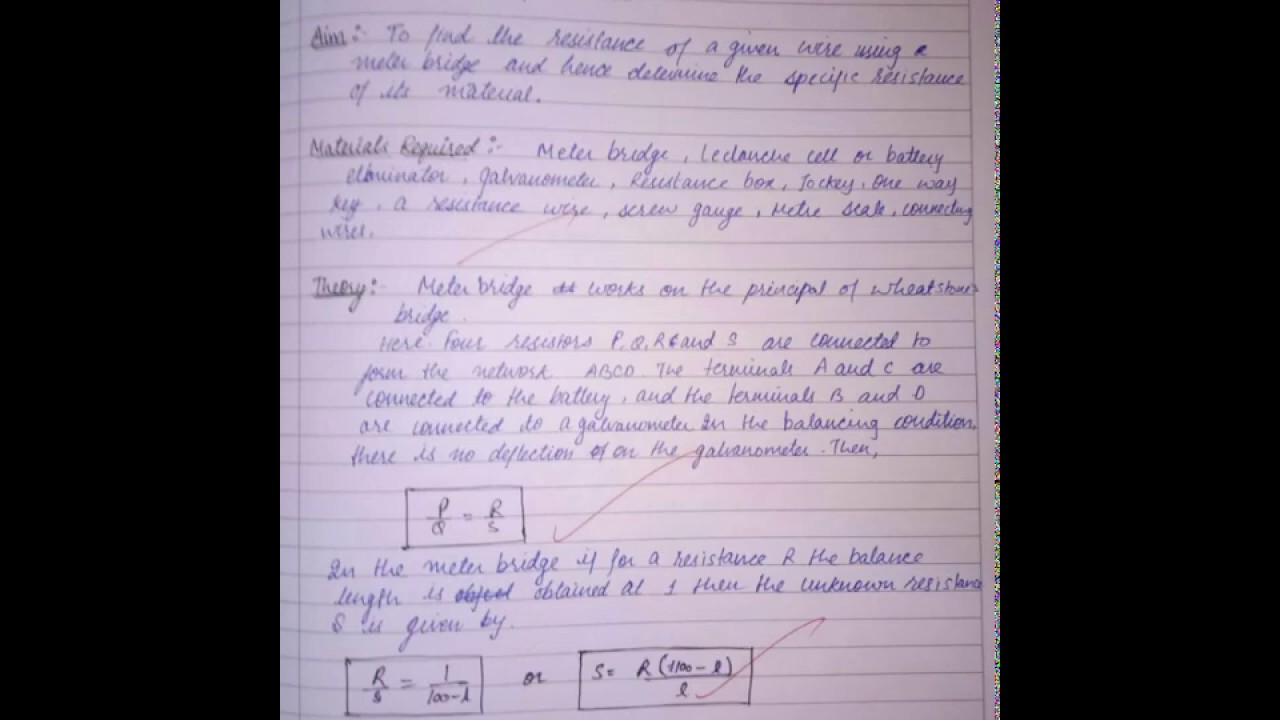 Aim:- To find the resistance of a given wire using a
meter bridge and hence determine the specific resistance
of its material.
Materials Required:- Meter bridge, Leclanche cell or battery
eliminator, galvanometer, Resistance box, Jockey, One way
key, a resistance wire, screw gauge, Metre scale, connecting
wires.
Theory:- Meter bridge works on the principal of wheatstone's
bridge.
Here Four resistors P, Q, R and S are connected to
form the network ABCD. The terminals A and C are
connected to the battery, and the terminals B and D
are connected to a galvanometer In the balancing condition,
there is no deflection on the galvanometer. Then,
P/Q = R/S
In the meter bridge if for a resistance R the balance
length is obtained at l then the unknown resistance
S is given by.
R/S = l/100-l or S = R(100-l)/l